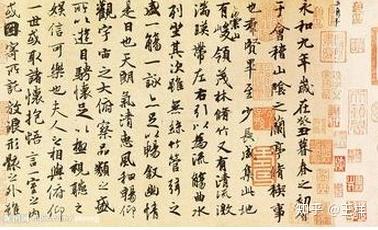 永和九年歲在癸丑暮春之初會
于會稽山陰之蘭亭脩稧事
也羣賢畢至少長咸集此地
有崇山峻領茂林脩竹又有清流激
湍暎帶左右引以為流觴曲水
列坐其次雖無絲竹管弦之
盛一觴一詠亦足以暢叙幽情
是日也天朗氣清惠風和暢仰
觀宇宙之大俯察品類之盛
所以遊目騁懷足以極視聽之
娛信可樂也夫人之相與俯仰
一世或取諸懷抱悟言一室之內
或因寄所託放浪形骸之外雖
知乎